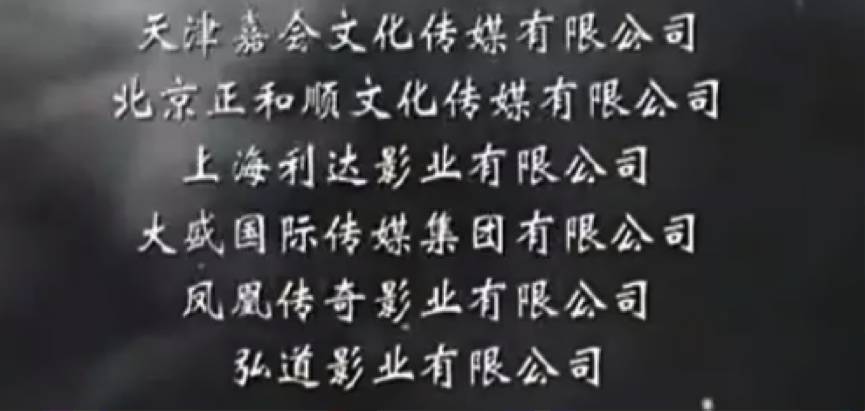 天津嘉会文化传媒有限公司
北京正和顺文化传媒有限公司
上海利达影业有限公司
大盛国际传媒集团有限公司
凤凰传奇影业有限公司
弘道影业有限公司